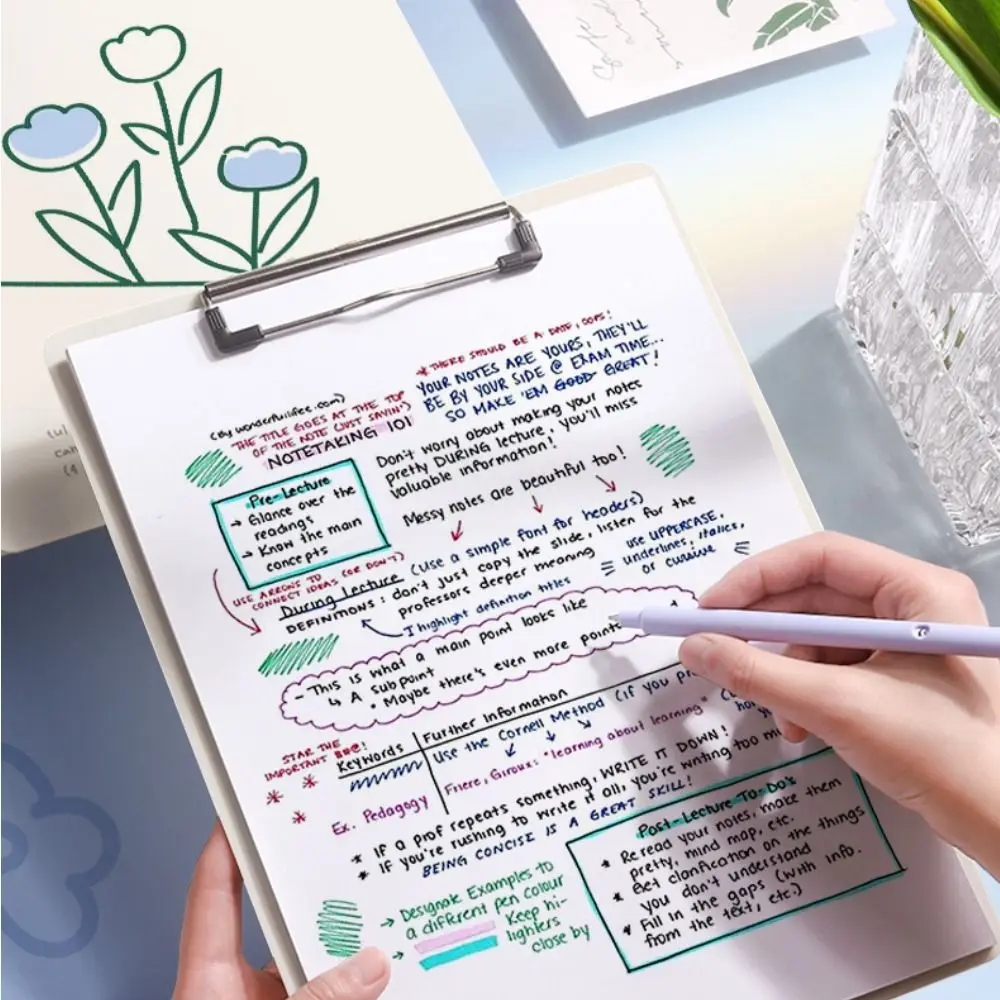 * THERE SHOULD BE A DATE, OOPS!
YOUR NOTES ARE YOURS, THEY'LL
BE BY YOUR SIDE @ EXAM TIME...
SO MAKE 'EM GOOD GREAT!
(By wonderfuilifee.com)
THE TITLE GOES AT THE TOP
OF THE NOTE (JUST SAYIN')
NOTETAKING 101
Don't worry about making your notes
pretty DURING lecture, you'll miss
valuable information!
Messy notes are beautiful too!
Pre-Lecture
→ Glance over the
readings
→ Know the main
concepts
USE ARROWS TO
CONNECT IDEAS (OR DON'T)
During Lecture (Use a simple font for headers)
DEFINITIONS: don't just copy the slide, listen for the
professors deeper meaning
I highlight definition titles
USE UPPERCASE,
underlines, italics,
or cursive
- This is what a main point looks like
↳ A subpoint
• Maybe there's even more points
STAR THE
IMPORTANT
Keywords
Further Information
Use the Cornell Method (if you
Ex. Pedagogy
Friere, Giroux: "learning about learning"
* If a prof repeats something, WRITE IT DOWN!
* If you're rushing to write it all, you're writing too
BEING CONCISE IS A GREAT SKILL!
→ Designate Examples to
a different pen colour
→ Keep hi-
lighters
close by
Post-Lecture To-Do's
* Reread your notes, make them
pretty, mind map, etc.
* Get clarification on the things
you don't understand
* Fill in the gaps (with info.
from the text, etc.)